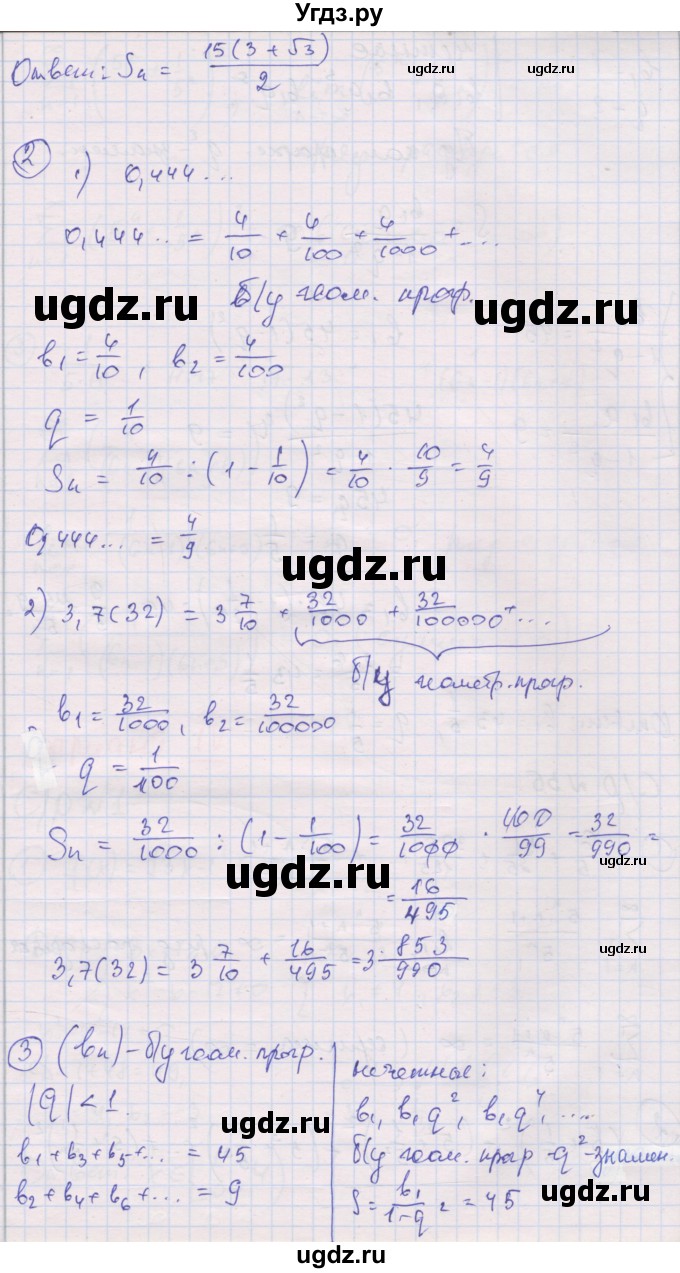 Угдз.ру
Ответ: Sn = 15(3 + √3) / 2
ugdz.ru ugdz.ru
2 1) 0,444...
0,444.. = 4/10 + 4/100 + 4/1000 + ...
б/у геом. прогр.
ugdz.ru ugdz.ru
b1 = 4/10, b2 = 4/100
q = 1/10
Sn = 4/10 : (1 - 1/10) = 4/10 · 10/9 = 4/9
ugdz.ru
0,444... = 4/9
ugdz.ru
2) 3,7(32) = 3 7/10 + 32/1000 + 32/100000 + ...
б/у геометр. прогр.
ugdz.ru ugdz.ru
b1 = 32/1000, b2 = 32/100000
q = 1/100
Sn = 32/1000 : (1 - 1/100) = 32/1000 · 100/99 = 32/990 =
ugdz.ru
= 16/495
ugdz.ru
3,7(32) = 3 7/10 + 16/495 = 3 · 853/990
3 (bn) - б/у геом. прогр.
|q| < 1.
b1 + b3 + b5 + ... = 45
b2 + b4 + b6 + ... = 9
нечетные:
b1, b1q², b1q⁴, ....
ugdz.ru ugdz.ru
б/у геом. прогр -q²-знамен.
S = b1/1-q² = 45
ugdz.ru